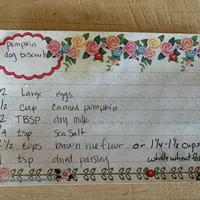 pumpkin
dog biscuits
2 Large eggs
1/2 cup canned pumpkin
2 TBSP dry milk
1/4 tsp sea salt
1/2 cups brown rice flour or 1 1/4 - 1 1/2 cups
1 tsp dried parsley whole wheat